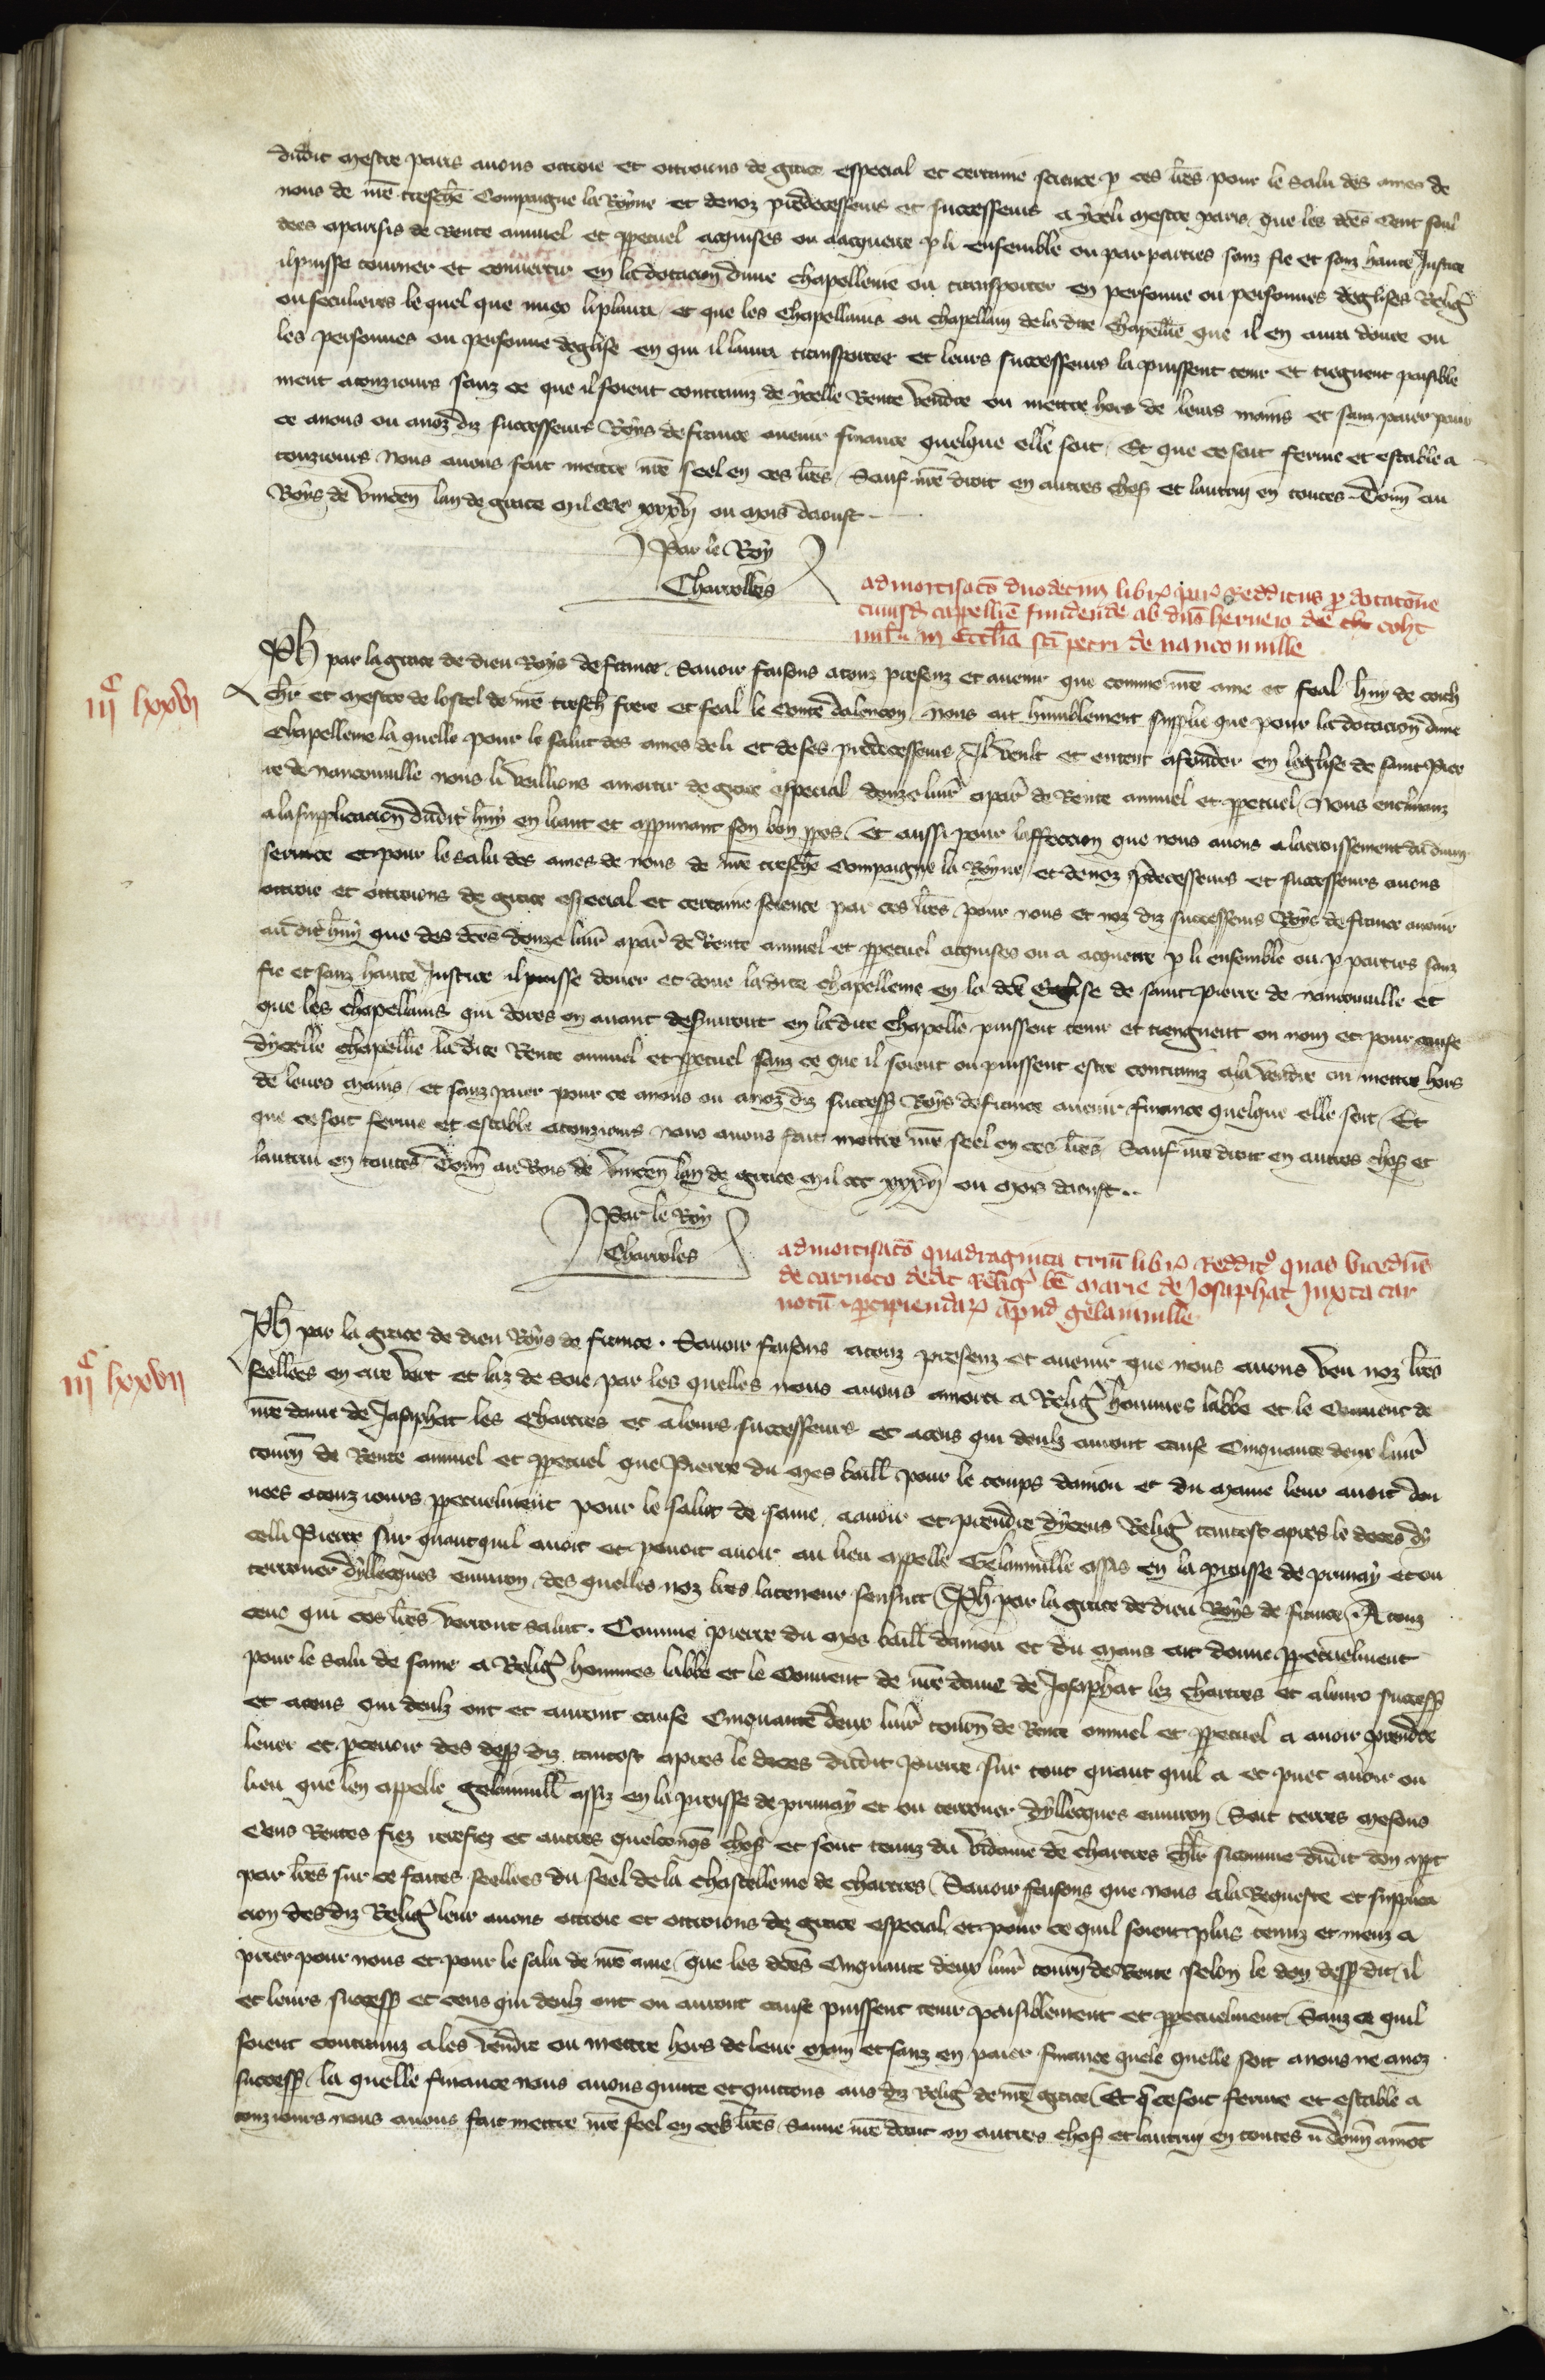 dudit mestre pares auons ottroie et ottroions de grace especial et certaine science p ces lres pour le salu des ames de
nous de nre treschre Compaigne la Royne et de noz predecesseurs et successeurs a yceli mestre pares que les dces cent soul
dees aparisis de Rente annuel et ppetuel acquises ou aacquerre p li ensemble ou par parties sanz fie et sanz haute Justice
il puisse tourner et conuertir en la dotacion dune chapellenie ou transporter en personne ou personnes deglises Relig
ou seculieres le quel que miex li plaira et que les chapellains ou chapellain de la dite chapellie que il en aura douee ou
les personnes ou personne deglise en qui il laura transportee et leurs successeurs la puissent tenir et tiegnent paisible
ment atouziours sanz ce que il soient contrainz de ycelle Rente vendre ou mettre hors de leurs mains et sanz paier pour
ce anous ou anoz diz successeurs Roys de france auenir finance quelque elle soit Et que ce soit ferme et estable a
touziours Nous auons fait mettre nre seel en ces lres Sauf nre droit en autres choses et lautruy en toutes Donn au
Boys de vincenn lan de grace mil ccc xxxvj ou mois daoust
Par le Roy
Charrolles
admortisaco duodecim libr par Redditus p dotacone
cuiusd cappellie fundende ab dno herueio de cohc
milr in ecclia sci petri de nanconuille
iijc lxxvj
Ph par la grace de dieu Roys de france Sauoir faisons atouz presenz et auenir que comme nre ame et feal hruy de coich
chlr et mestre de lostel de nre treschr frere et feal le conte dalencon Nous ait humblement supplie que pour la dotacion dune
Chapellenie la quelle pour le salut des ames de li et de ses predecesseurs Il veult et entent afonder en leglise de saint Pier
re de nanconuille nous li veillions amortir de grace especial douze liur apar de Rente annuel et ppetuel Nous enclinanz
ala supplicacion dudit hruy en loant et appruuant son bon ppos Et aussi pour laffeccion que nous auons alacroissement du diuin
seruice et pour le salu des ames de nous de nre treschre Compaigne la Royne et denoz predecesseurs et successeurs auons
ottroie et ottroions de grace especial et certaine science par ces lres pour nous et noz diz successeurs Roys de france auenir
audit hruy que des dces douze liur apar de Rente annuel et ppetuel acquises ou a acquerre p li ensemble ou p parties sanz
fie et sanz haute Justice il puisse douer et doue ladite chapellenie en la dce Eglise de saint pierre de nanconuille et
que les chapellains qui dores en auant desseruiront en ladite Chapelle puissent tenir et tiengnent ou nom et pour cause
dycelle chapellie la dite Rente annuel et ppetuel sanz ce que il soient ou puissent estre contrainz ala vendre ou mettre hors
de leurs mains et sanz paier pour ce anous ou anoz diz success Roys de france auenir finance quelque elle soit Et
que ce soit ferme et estable atouziours nous auons fait mettre nre seel en ces lres Sauf nre droit en autres choses et
lautrui en toutes Donn au Bois de vincenn lan de grace mil ccc xxxvj ou mois daoust
Par le Roy
Charroles
admortisaco quadraginta triu libr Reddit quas vicedns
de carnoto dedit Relig be marie de Josaphat Juxta car
notu pcipiendar apud gelainuille
iijc lxxvij
Ph par la grace de dieu Roys de france . Sauoir faisons atouz presenz et auenir que nous auons veu noz lres
seellees en cire vert et laz de soie par les quelles nous auons amorti a Relig hommes labbe et le Conuent de
nre dame de Josaphat les chartres et aleurs successeurs et aceus qui deulz auront cause Cinquante deux liur
tourn de Rente annuel et ppetuel que Pierre du mes baill pour le temps daniou et du maine leur auoit don
nees atouz iours ppetuelment pour le salut de same aauoir et prendre dyceus Relig tantost apres le deces dy
celli Pierre sur quantquil auoit et pouoit auoir au lieu appelle Gelainuille assis en la paroisse de prunay et ou
terrouer dyllecques enuiron des quelles noz lres lateneur sensuit Ph par la grace de dieu Roys de france A touz
ceus qui ces lres verront salut . Comme pierre du mes baill daniou et du mans ait donne ppetuelment
pour le salu de same a Relig hommes labbe et le Conuent de nre dame de Josaphat lez chartres et aleurs success
et aceus qui deulz ont et auront cause Cinquante deux liur tourn de Rente annuel et ppetuel a auoir prendre
leuer et perceuoir des dess diz tantost apres le deces dudit Pierre sur tout quant quil a et puet auoir ou
lieu que len appelle gelainuill assiz en la paroisse de prunay et ou terrouer dyllecques enuiron Soit terres mesons
Cens Rentes fiez rerefiez et autres quelconqs choses et sont tenuz du vidame de chartres chlr sicomme dudit don appt
par lres sur ce faites seellees du seel de la chastellenie de chartres Sauoir faisons que nous ala Requeste et supplica
cion des diz Relig leur auons ottroie et ottroions de grace especial et pour ce quil soient plus tenuz et meuz a
prier pour nous et pour le salu de nre ame que les dces Cinquante deux liur tourn de Rente selon le don dess dit il
et leurs success et ceus qui deulz ont ou auront cause puissent tenir paisiblement et ppetuelment Sanz ce quil
soient contrainz ales vendre ou mettre hors de leur main et sanz en paier finance quele quelle soit anous ne anoz
success la quelle finance nous auons quitte et quittons aus diz Relig de nre grace Et q ce soit ferme et estable a
touziours nous auons fait mettre nre seel en ces lres Sauue nre droit en autres choses et lautruy en toutes Donn